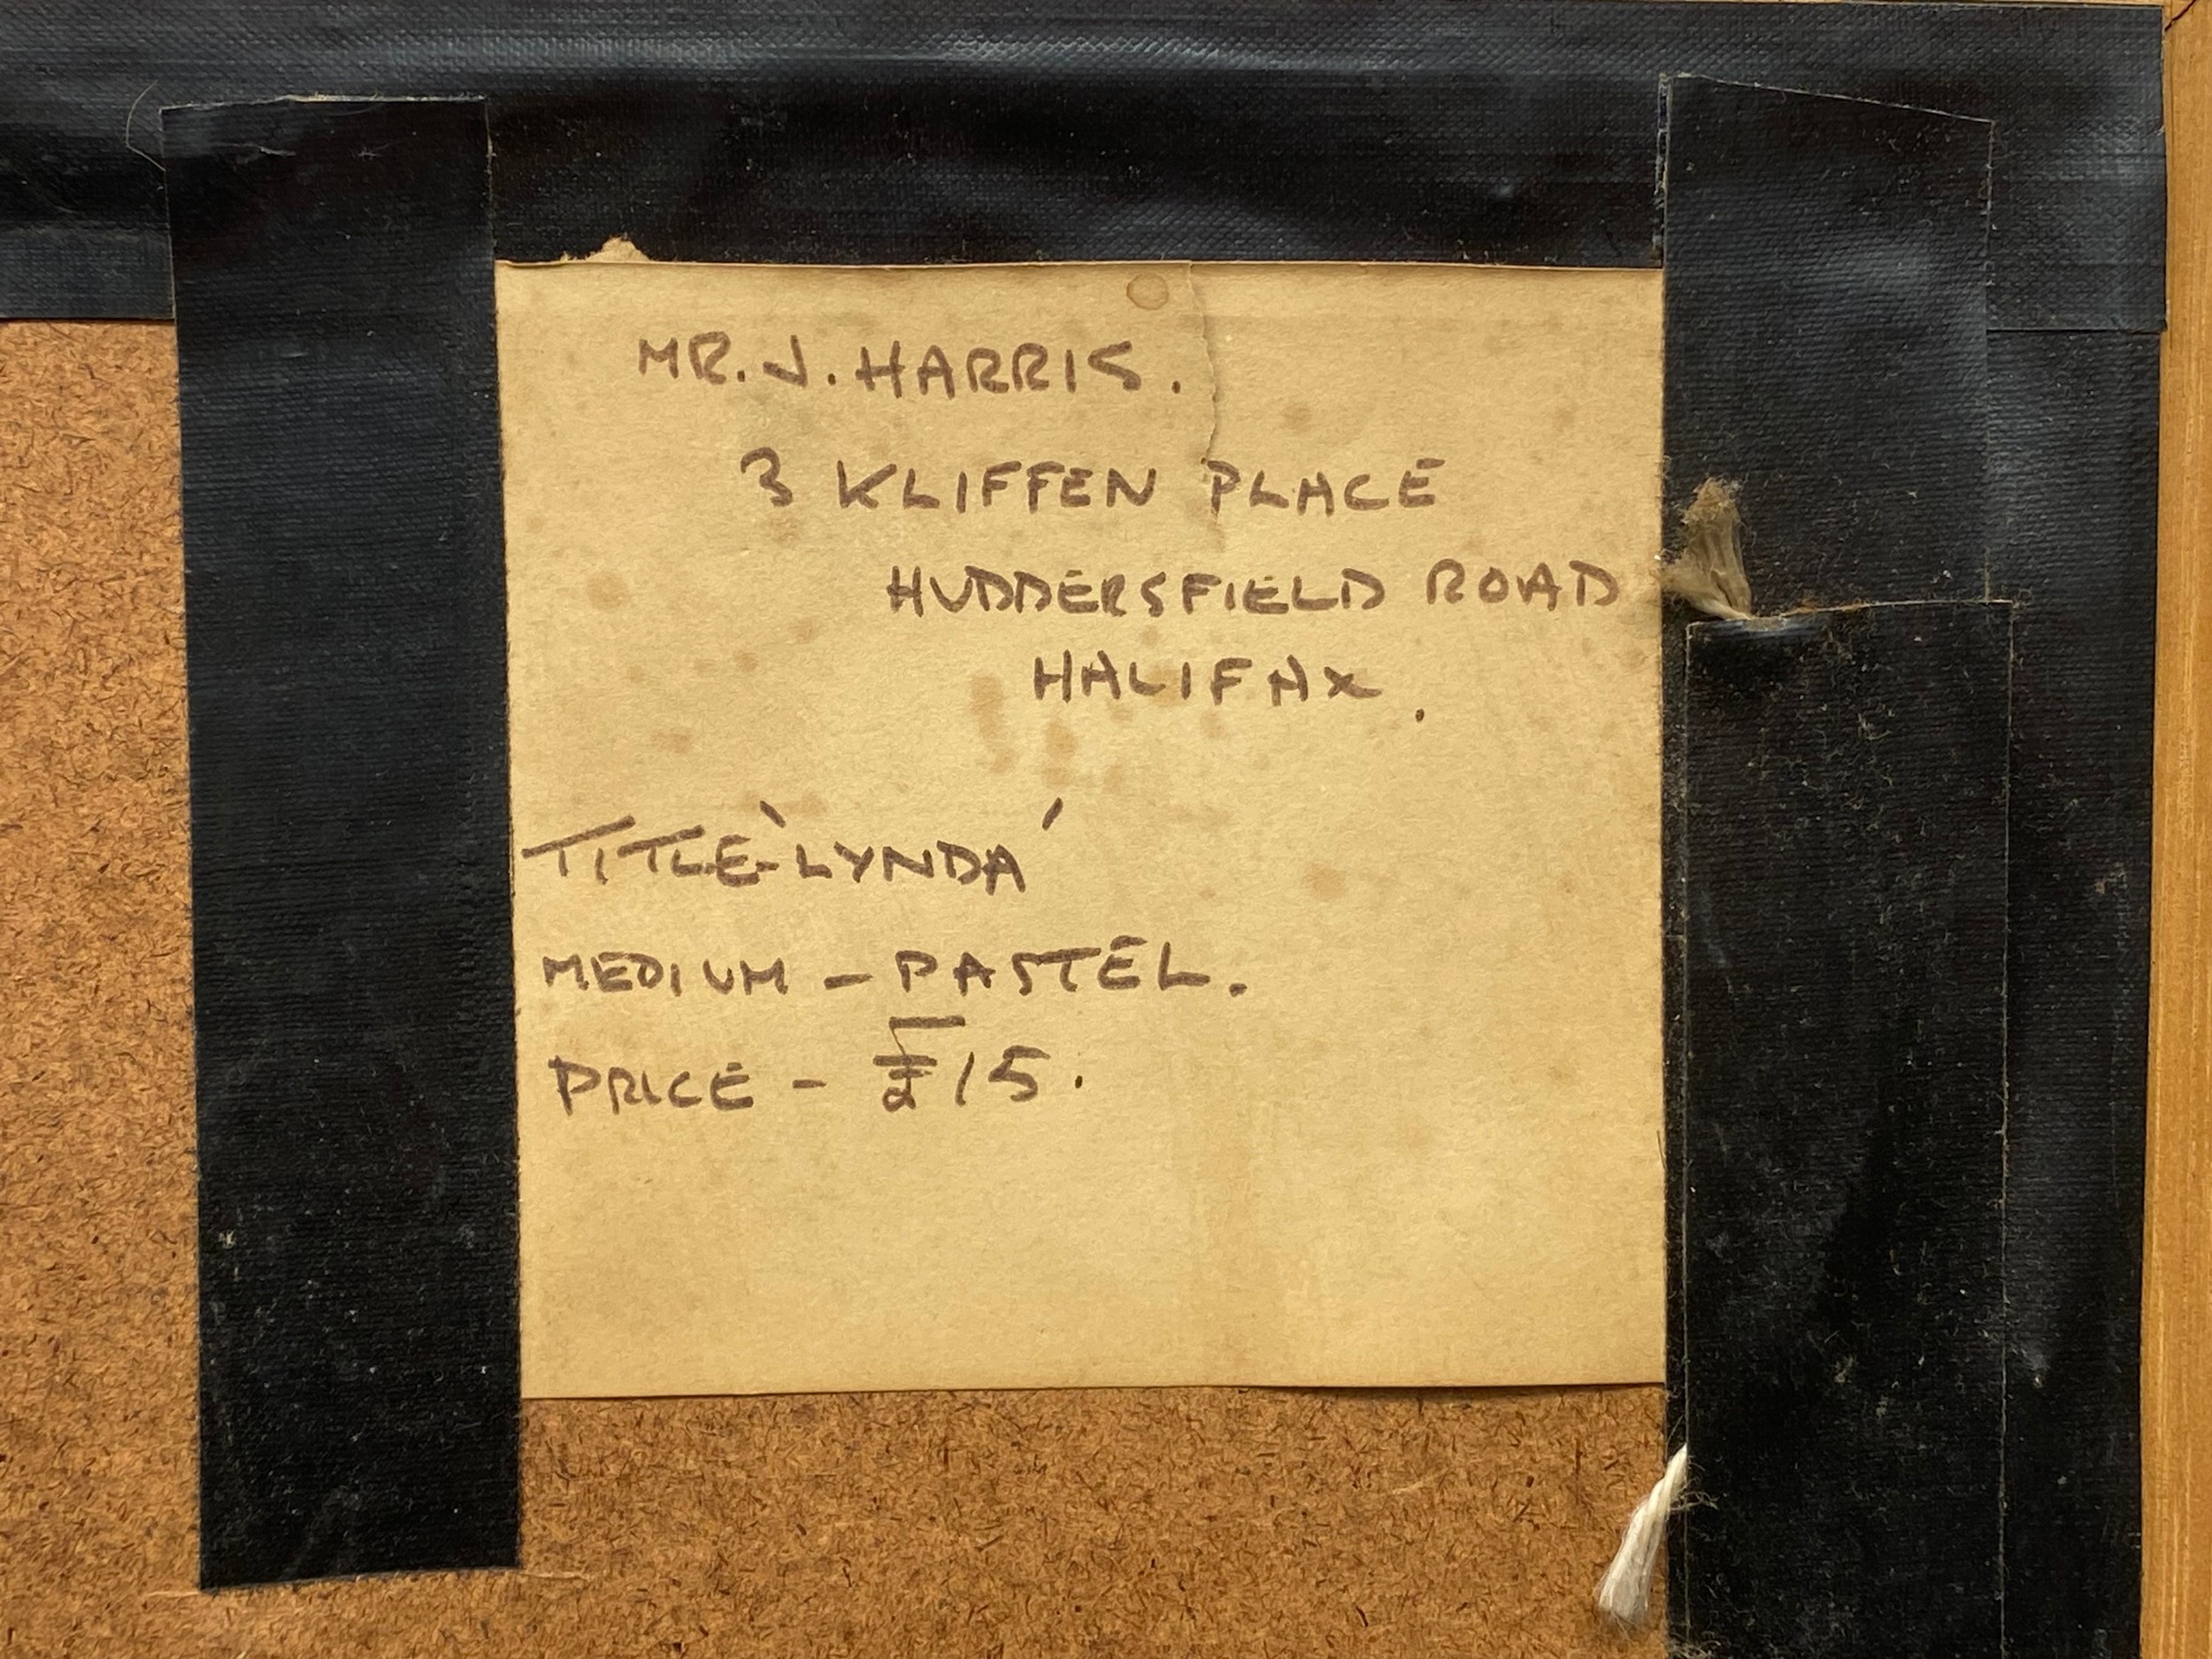 MR. J. HARRIS.
3 KLIFFEN PLACE
HUDDERSFIELD ROAD
HALIFAX.
TITLE - 'LYNDA'
MEDIUM - PASTEL.
PRICE - £15.